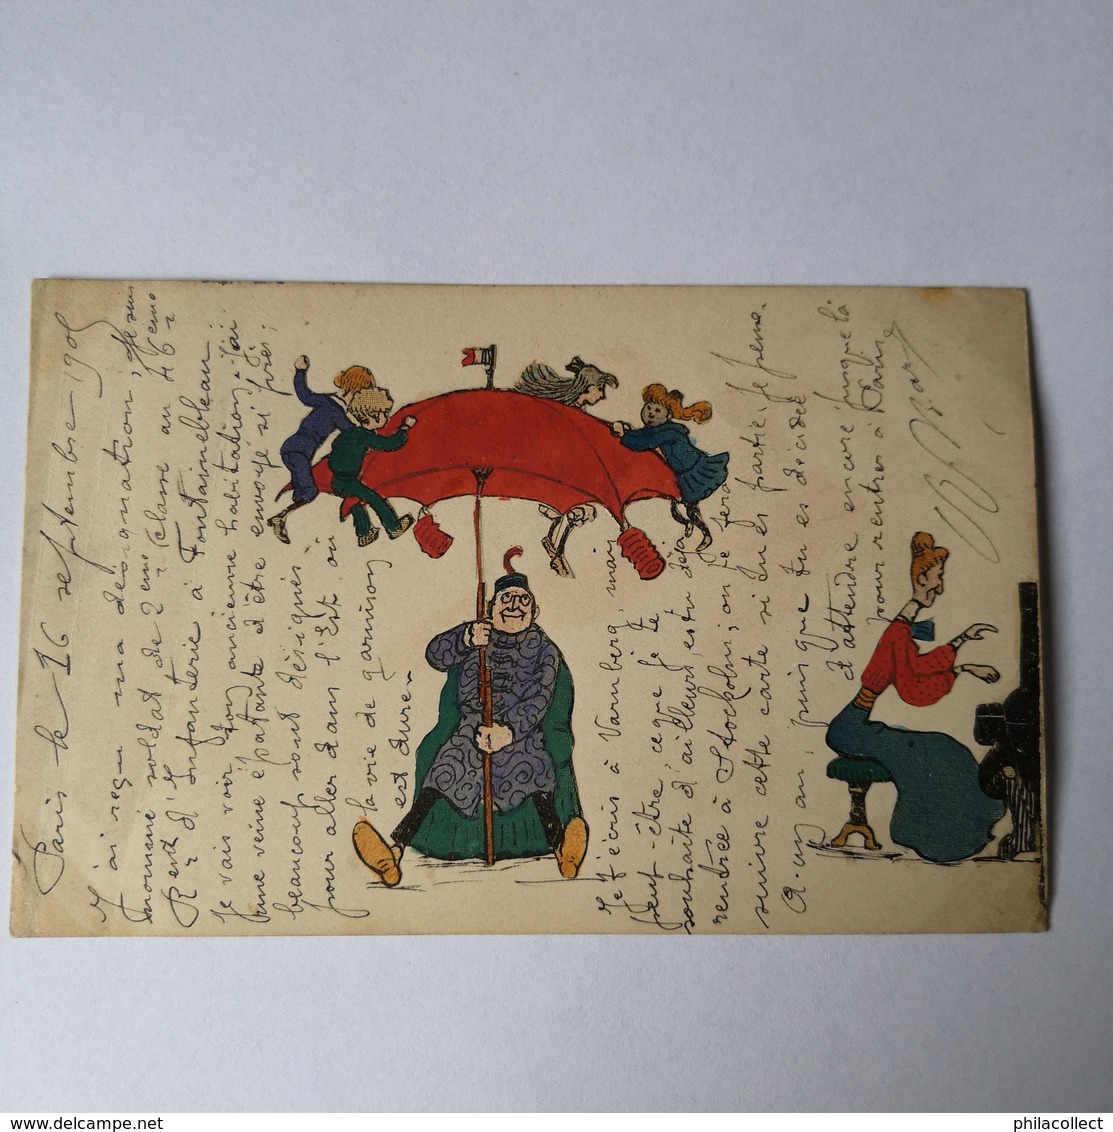 Paris le 16 septembre 1905
J'ai reçu ma désignation, je suis
nommé soldat de 2ème classe au 46ème
Régt d'Infanterie à Fontainebleau
Je vais voir ton ancienne habitation - J'ai
une veine épatante d'être envoyé si près ;
beaucoup sont désignés
pour aller dans l'Est où
la vie de garnison
est dure -
Je t'écris à Varnberg, mais
peut-être ce que je te
souhaite d'ailleurs, es-tu déjà
rentrée à Stockolm ; on fera
suivre cette carte si tu es partie, je pense.
A un an, puis que tu es décidée
d'attendre encore jusque là
pour rentrer à Paris
philacollect